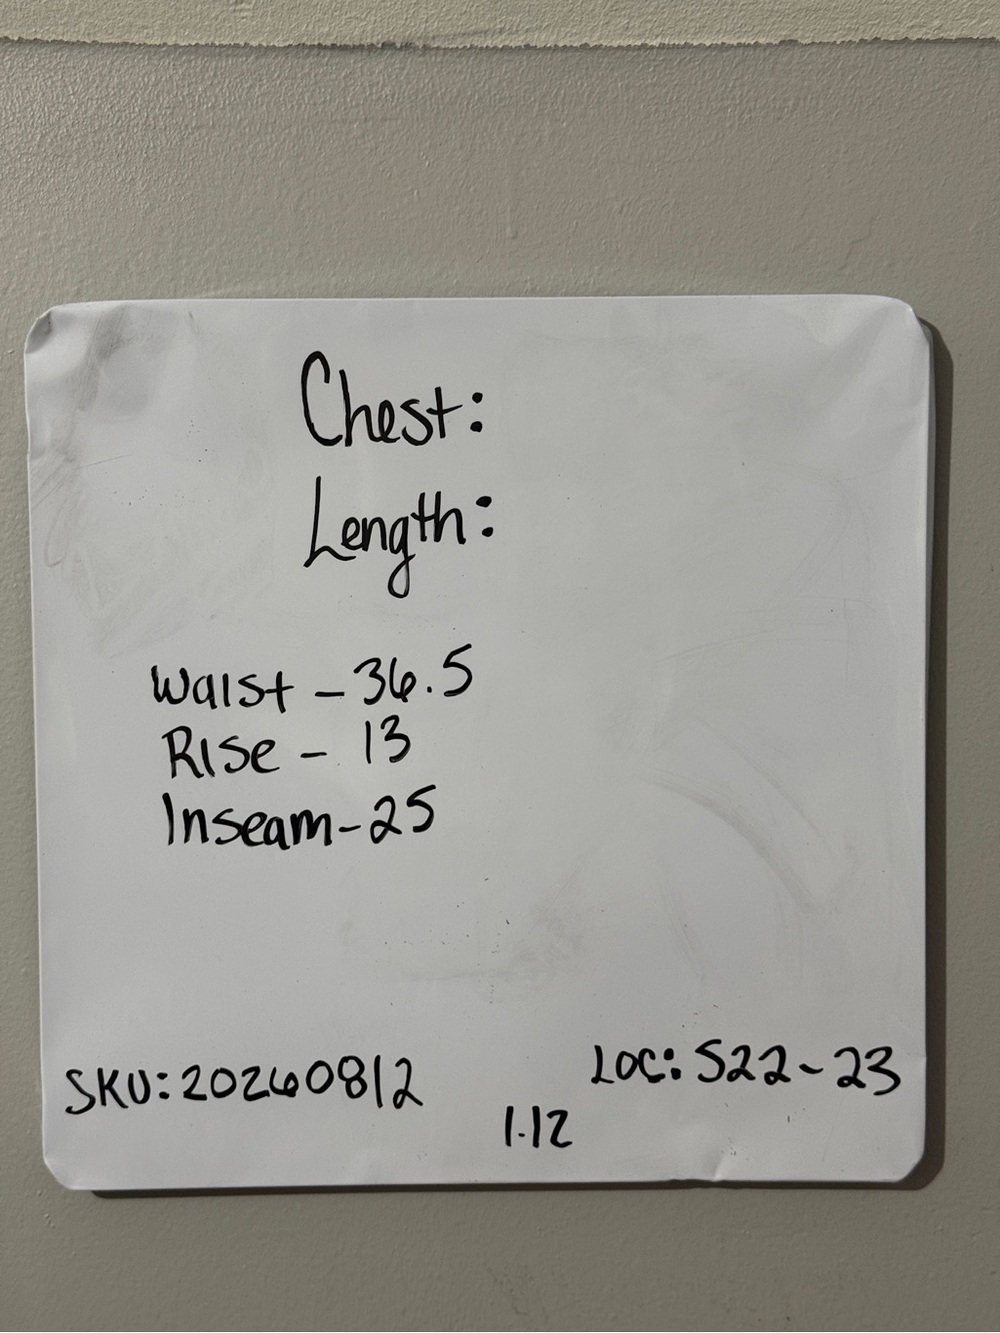 Chest:
Length:
Waist - 36.5
Rise - 13
Inseam-25
SKU: 20260812
LOC: S22-23
1.12